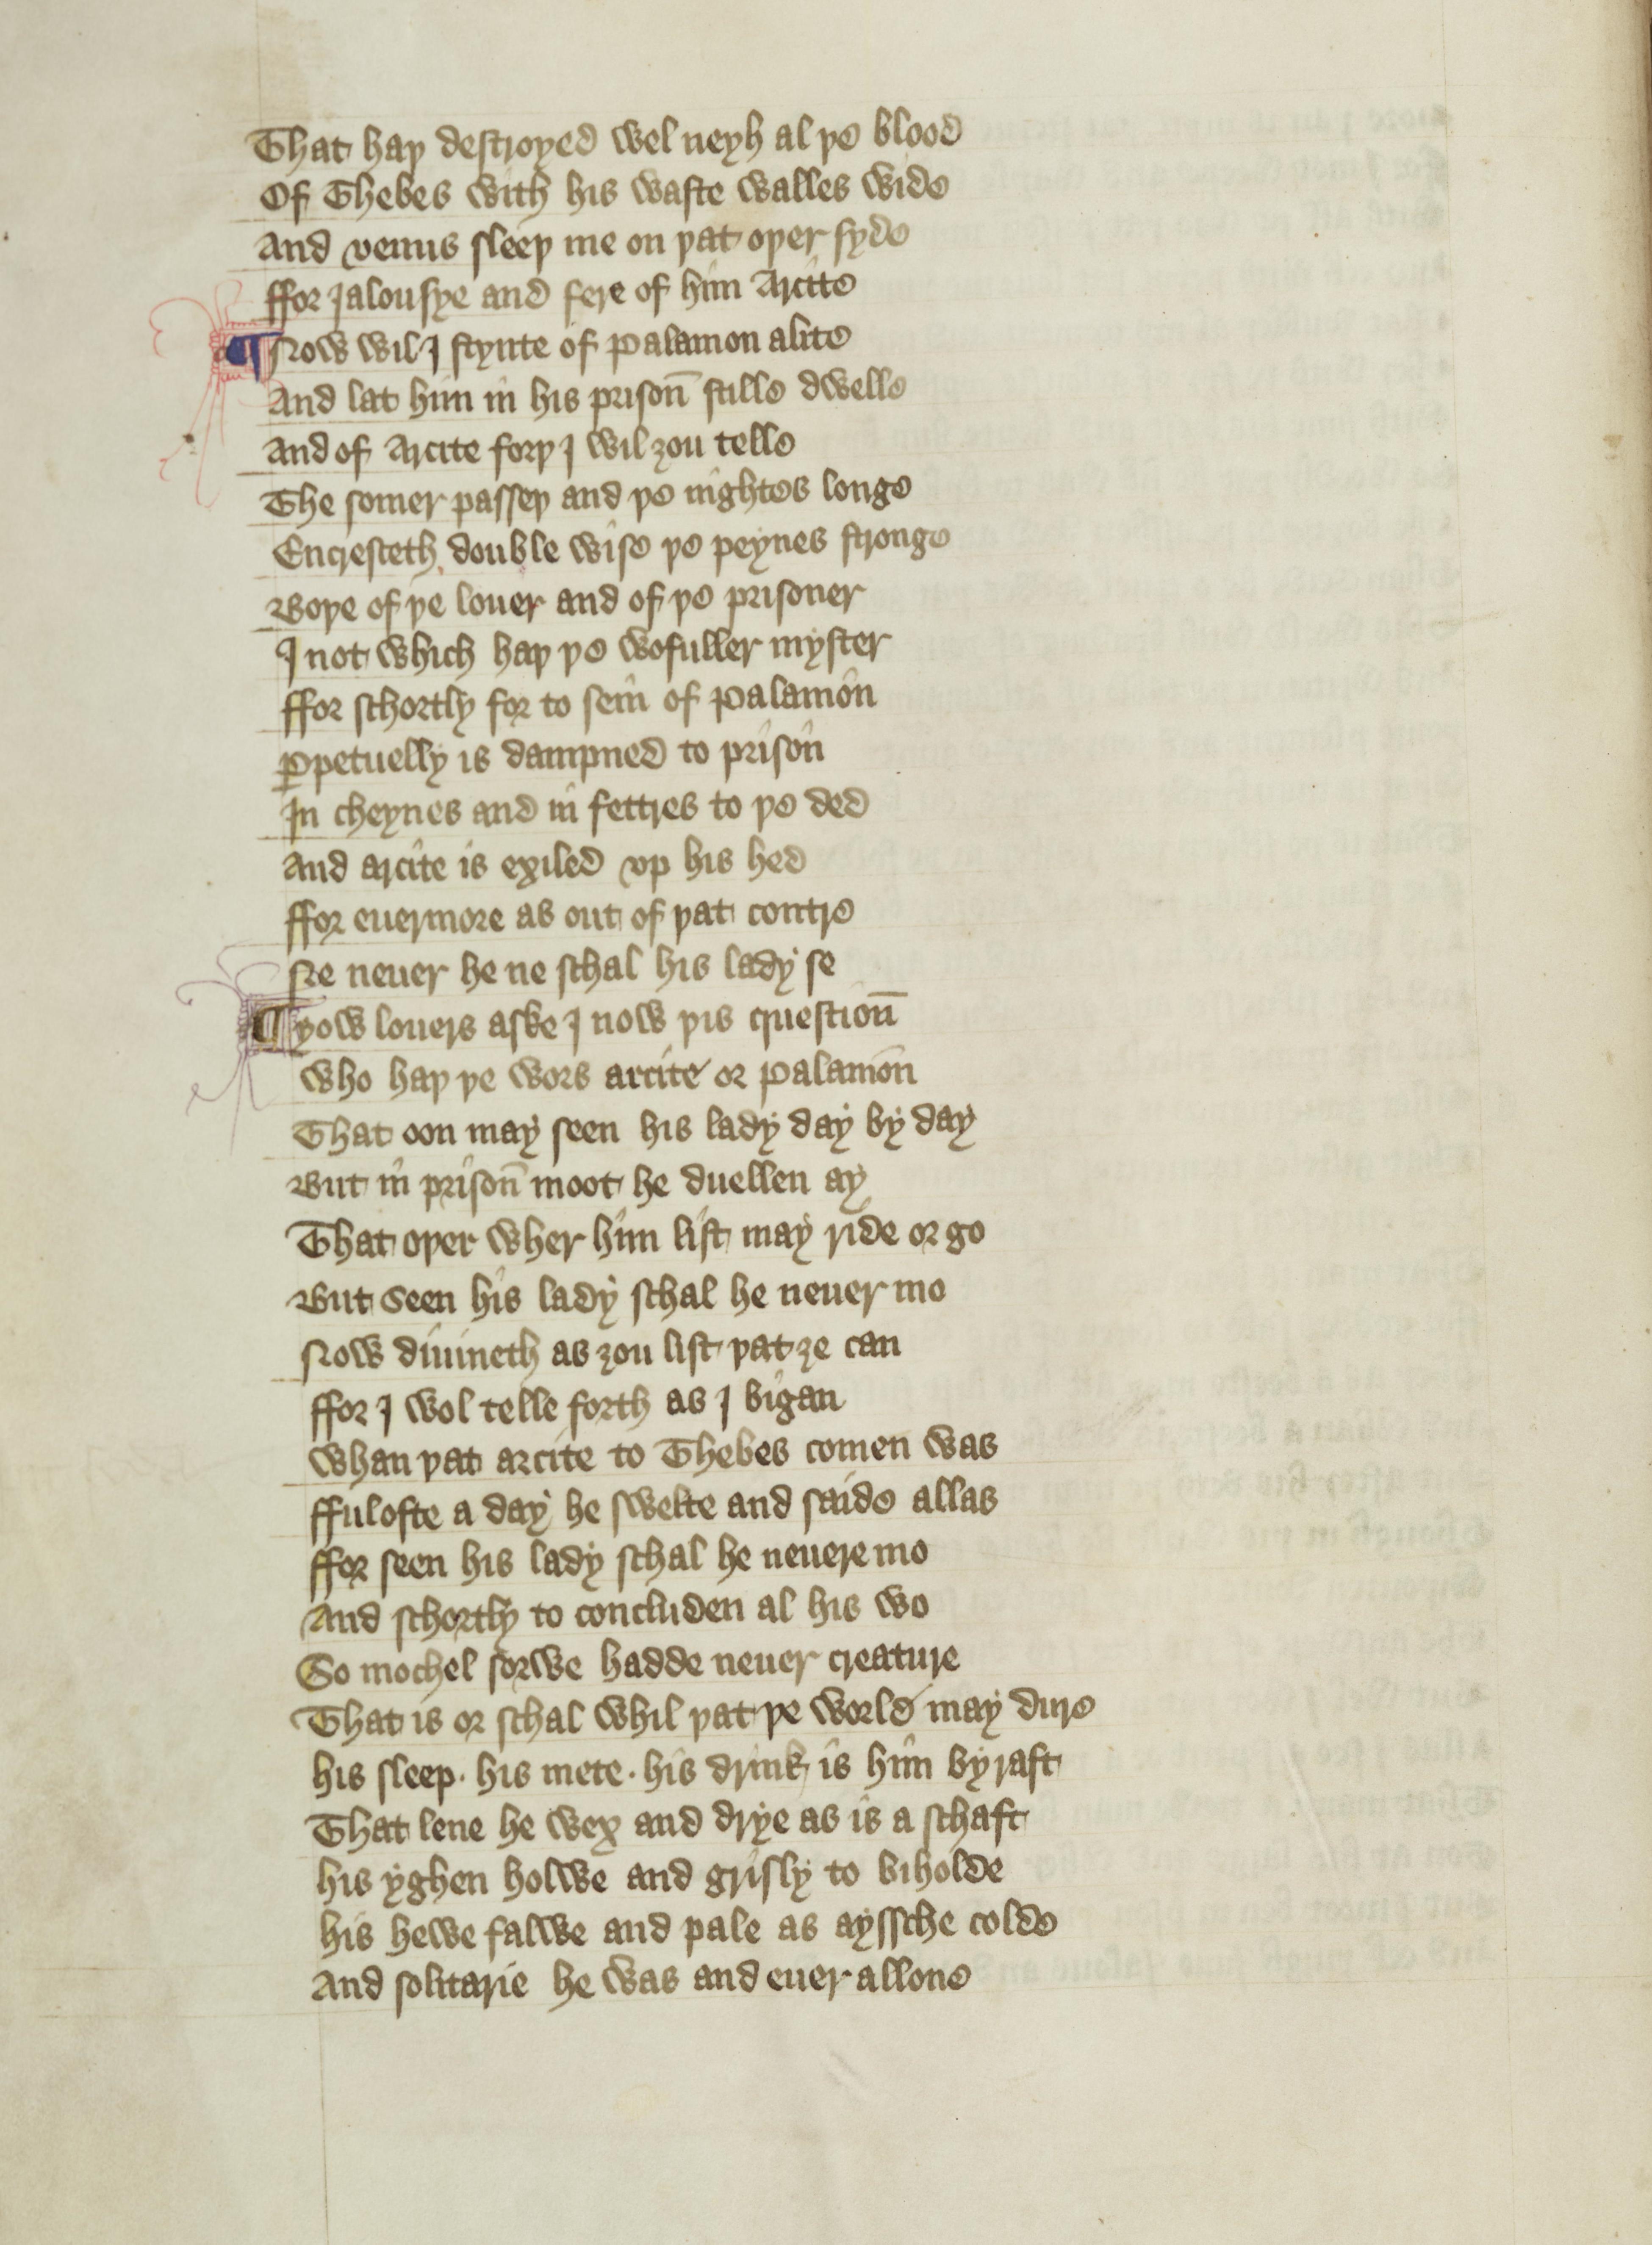 That haþ destroyed wel neyh al þe blood
Of Thebes with his waste walles wide
And venus sleeþ me on þat oþer syde
ffor Jalousye and fere of him Arcite
¶ Now wil I stynte of Palamon a lite
And lat him in his prison̄ stille dwelle
And of Arcite forþ I wil ȝou telle
The somer passeþ and þe nightes longe
Encresceth double wise þe peynes stronge
Boþe of þe louer and of þe prisoner
I not which haþ þe wofuller myster
ffor schortly for to sein of Palamon
Ꝑpetuelly is dampned to prison
In cheynes and in fettres to þe ded
And arcite is exiled vp his hed
ffor euermore as out of þat contre
Ne neuer he ne schal his lady se
¶ yow louers aske I now þis question̄
Who haþ þe wors arcite or Palamon
That oon may seen his lady day by day
But in prison̄ moot he duellen ay
That oþer wher him list may ride or go
But seen his lady schal he neuer mo
Now diuineth as ȝou list þat ȝe can
ffor I wol telle forth as I bigan
Whan þat arcite to Thebes comen was
fful ofte a day he swelte and saide allas
ffor seen his lady schal he neuere mo
And schortly to concluden al his wo
So mochel sorwe hadde neuer creature
That is or schal whil þat þe world may dure
his sleep · his mete · his drink is him byraft
That lene he wex and drye as is a schaft
his yghen holwe and grisly to biholde
his hewe falwe and pale as ayssche colde
And solitarie he was and euer allone